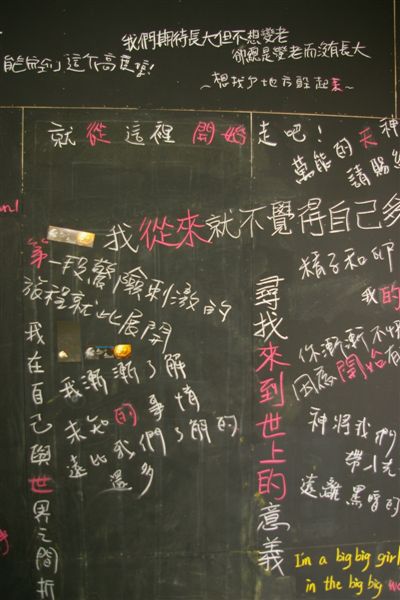 我們期待長大但不想變老
卻總是變老而沒有長大
~想找個地方躲起來~
這個高度啦!
就從這裡開始走吧!
萬能的
請賜
我從來就不覺得自己多
第一段驚險刺激的
旅程就此展開
我漸漸了解
未知的事情
遠比我們了解的
還多
我在自己與世界之間折
尋找來到世上的意義
精子和卵
我的
你漸漸不
因應開始
神將我們
帶入
遠離黑暗的
I'm a big big girl
in the big big